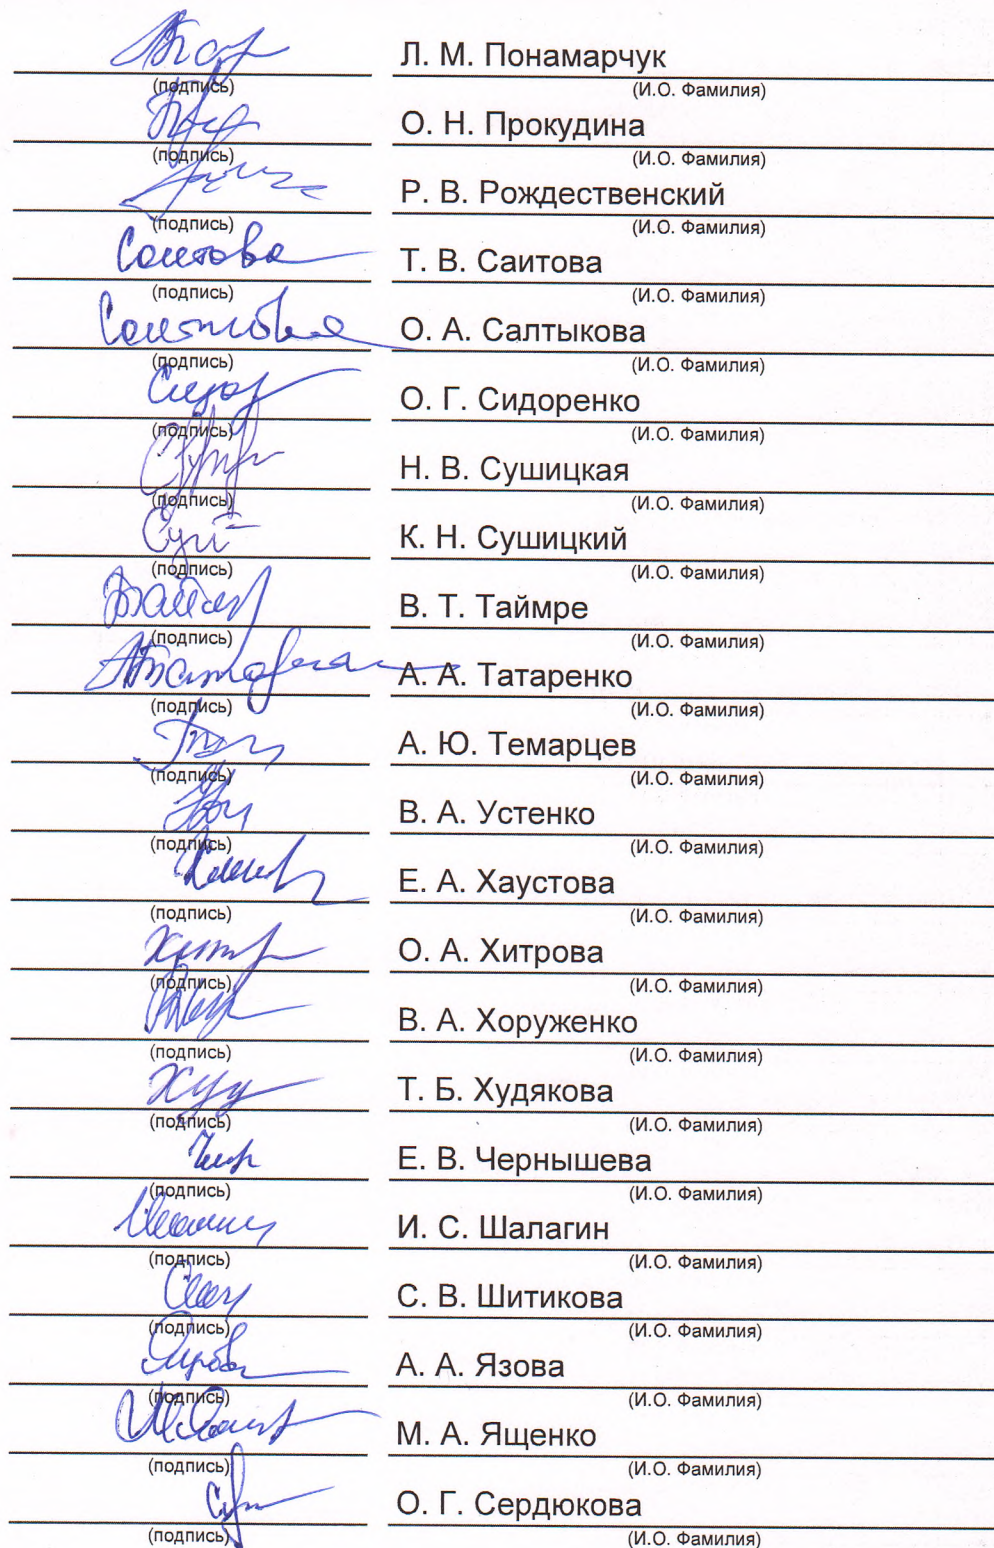 Л. М. Понамарчук
(подпись) (И.О. Фамилия)
О. Н. Прокудина
(подпись) (И.О. Фамилия)
Р. В. Рождественский
(подпись) (И.О. Фамилия)
Саитова Т. В. Саитова
(подпись) (И.О. Фамилия)
О. А. Салтыкова
(подпись) (И.О. Фамилия)
О. Г. Сидоренко
(подпись) (И.О. Фамилия)
Н. В. Сушицкая
(подпись) (И.О. Фамилия)
К. Н. Сушицкий
(подпись) (И.О. Фамилия)
В. Т. Таймре
(подпись) (И.О. Фамилия)
А. А. Татаренко
(подпись) (И.О. Фамилия)
А. Ю. Темарцев
(подпись) (И.О. Фамилия)
В. А. Устенко
(подпись) (И.О. Фамилия)
Е. А. Хаустова
(подпись) (И.О. Фамилия)
О. А. Хитрова
(подпись) (И.О. Фамилия)
В. А. Хоруженко
(подпись) (И.О. Фамилия)
Худ Т. Б. Худякова
(подпись) (И.О. Фамилия)
Е. В. Чернышева
(подпись) (И.О. Фамилия)
И. С. Шалагин
(подпись) (И.О. Фамилия)
С. В. Шитикова
(подпись) (И.О. Фамилия)
А. А. Язова
(подпись) (И.О. Фамилия)
М. А. Ященко
(подпись) (И.О. Фамилия)
О. Г. Сердюкова
(подпись) (И.О. Фамилия)